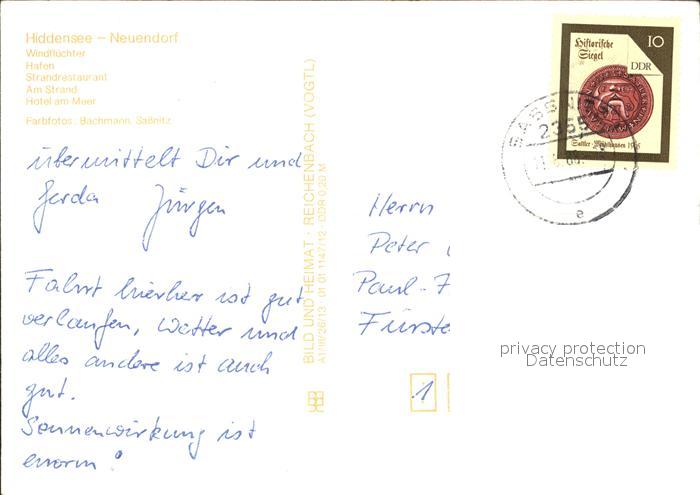 Hiddensee – Neuendorf
Windflüchter
Hafen
Strandrestaurant
Am Strand
Hotel am Meer
Farbfotos: Bachmann, Saßnitz
übermittelt Dir und
Gerda Jürgen
Fahrt hierher ist gut
verlaufen, Wetter und
alles andere ist auch
gut.
Sonnenwirkung ist
enorm!
BILD UND HEIMAT · REICHENBACH (VOGTL)
A1/III/26/13 01 01 1147/12 DDR 0,20 M
Historische
Siegel
10
DDR
SASSNITZ
2355
e
Herrn
Peter
Paul-
Fürste
1
privacy protection
Datenschutz